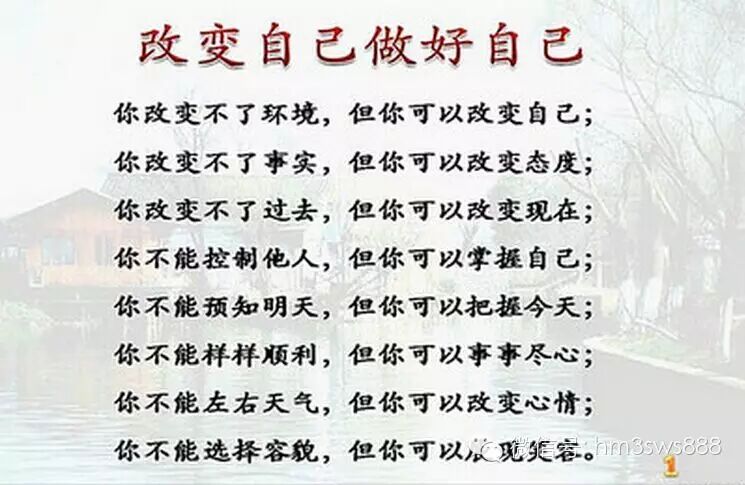 改变自己做好自己
你改变不了环境，但你可以改变自己；
你改变不了事实，但你可以改变态度；
你改变不了过去，但你可以改变现在；
你不能控制他人，但你可以掌握自己；
你不能预知明天，但你可以把握今天；
你不能样样顺利，但你可以事事尽心；
你不能左右天气，但你可以改变心情；
你不能选择容貌，但你可以展现笑容。
微信号: hm3sws888
1